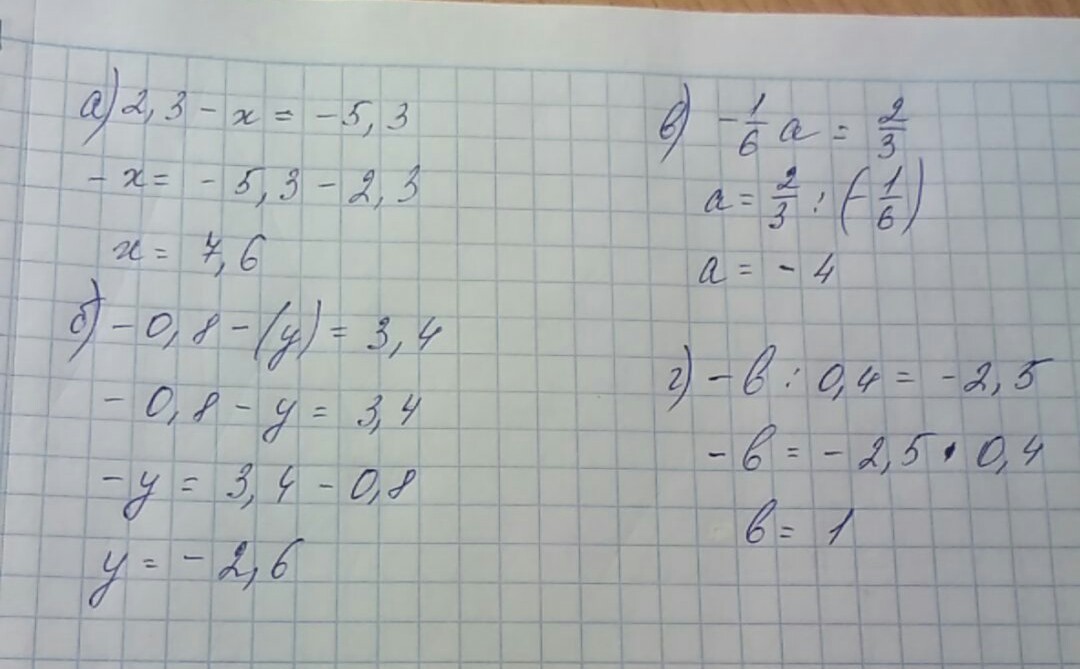 а) 2,3 - x = -5,3
- x = - 5,3 - 2,3
x = 7,6
б) - 0,8 - (y) = 3,4
- 0,8 - y = 3,4
- y = 3,4 - 0,8
y = - 2,6
в) - 1/6 a = 2/3
a = 2/3 : (- 1/6)
a = - 4
г) - в : 0,4 = - 2,5
- в = - 2,5 · 0,4
в = 1